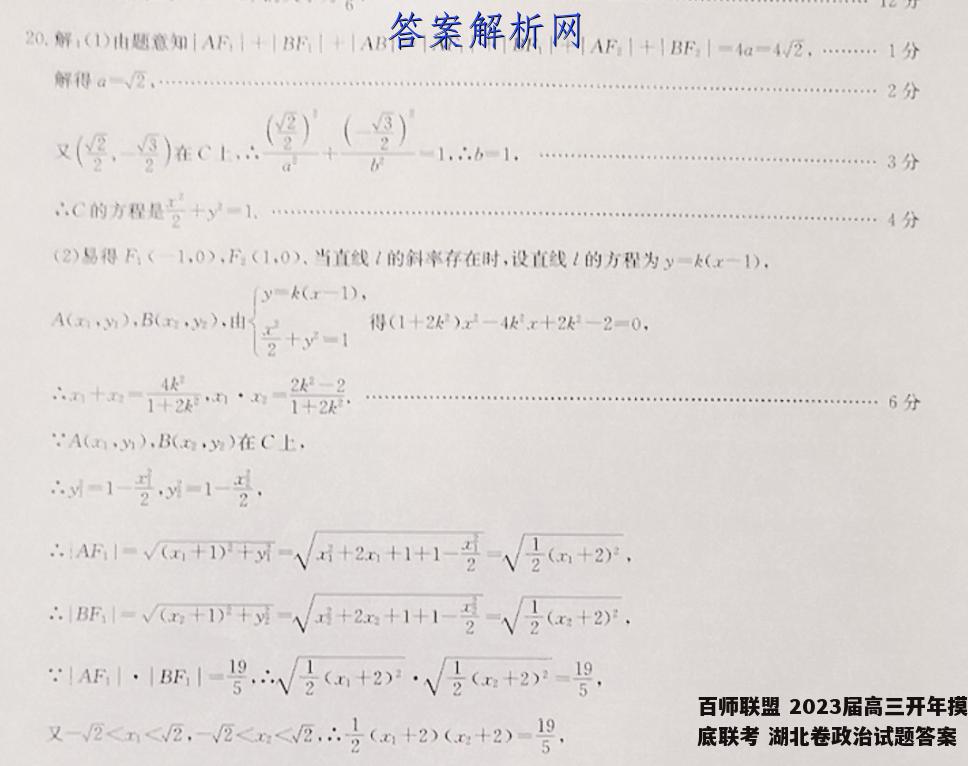 12 分
6
答案解析网
20. 解:(1)由题意知|AF₁|+|BF₁|+|AB AF₂|+|BF₂|=4a=4√2, ……… 1分
解得 a=√2, ……… 2分
又(√2/2, -√3/2)在 C 上,∴(√2/2)²/a²+(-√3/2)²/b²=1,∴b=1, ……… 3分
∴C 的方程是x²/2+y²=1. ……… 4分
(2)易得 F₁(-1,0),F₂(1,0), 当直线 l 的斜率存在时,设直线 l 的方程为 y=k(x-1),
A(x₁,y₁),B(x₂,y₂),由{y=k(x-1), x²/2+y²=1 得(1+2k²)x²-4k²x+2k²-2=0,
∴x₁+x₂=4k²/1+2k²,x₁·x₂=2k²-2/1+2k², ……… 6分
∵A(x₁,y₁),B(x₂,y₂)在 C 上,
∴y₁²=1-x₁²/2,y₂²=1-x₂²/2,
∴|AF₁|=√(x₁+1)²+y₁²=√x₁²+2x₁+1+1-x₁²/2=√1/2(x₁+2)²,
∴|BF₁|=√(x₂+1)²+y₂²=√x₂²+2x₂+1+1-x₂²/2=√1/2(x₂+2)²,
∵|AF₁|·|BF₁|=19/5,∴√1/2(x₁+2)²·√1/2(x₂+2)²=19/5,
又-√2<x₁<√2,-√2<x₂<√2,∴1/2(x₁+2)(x₂+2)=19/5,
百师联盟 2023届高三开年摸
底联考 湖北卷政治试题答案